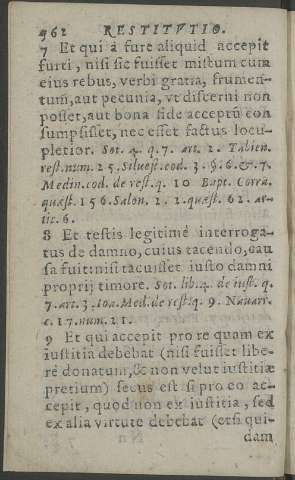 962 RESTITVTIO.
7 Et qui à fure aliquid accepit
furti, nisi sic fuisset mistum cum
eius rebus, verbi gratia, frumen-
tum, aut pecunia, vt discerni non
posset, aut bona fide acceptū con
sumpsisset, nec esset factus locu-
pletior. Sot. 4. q. 7. art. 2. Tabien.
rest. num. 25. Siluest. eod. 3. §. 6. & 7.
Medin. cod. de rest. q. 10 Bapt. Corra.
quæst. 156. Salon. 2. 2. quæst. 62. ar-
tic. 6.
8 Et testis legitimè interroga-
tus de damno, cuius tacendo, cau
sa fuit: nisi tacuisset iusto damni
proprij timore. Sot. lib. 4. de iust. q.
7. art. 3. Ioa. Med. de rest. q. 9. Nauarr.
c. 17. num. 21.
9 Et qui accepit pro re quam ex
iustitia debebat (nisi fuisset libe-
rè donatum, & non velut iustitiæ
pretium) secus est si pro eo ac-
cepit, quod non ex iustitia, sed
ex alia virtute debebat (etsi qui-
dam